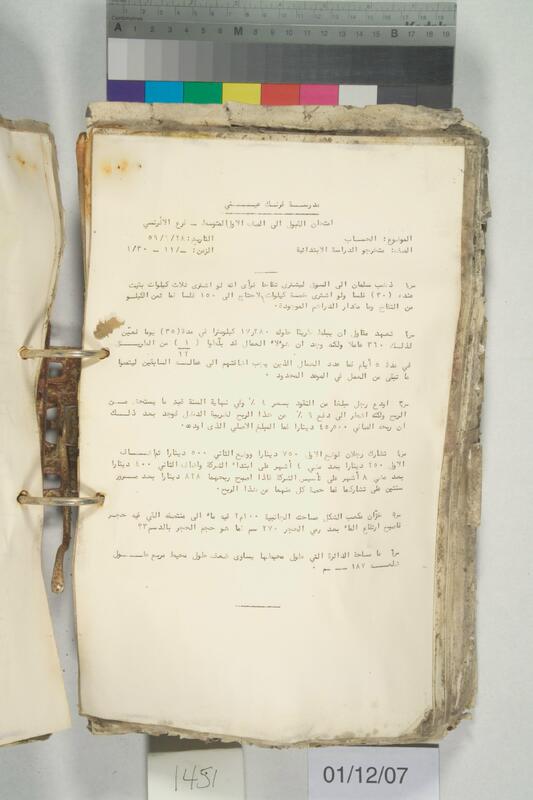 مدرسة فرنك عيني
امتحان القبول الى الصف الاول المتوسط – فرع الافرنسي
الموضوع: الحساب التاريخ: ٥٩/٦/٢٨
الصف: متخرجو الدراسة الابتدائية الزمن: ١١/– – ١/٣٠
س١ ذهب سلمان الى السوق ليشتري تفاحا فرأى انه لو اشترى ثلاث كيلوات بقيت
عنده (٣٠) فلسا ولو اشترى خمسة كيلوات لاحتاج الى ١٥٠ فلسا فما ثمن الكيلو
من التفاح وما مقدار الدراهم الموجودة.
س٢ تعهد مقاول ان يبلط طريقا طوله ١٧,٢٨٠ كيلومترا في مدة (٣٥) يوما فعين
لذلك ٣٦٠ عاملا ولكنه وجد ان هؤلاء العمال قد بلطوا (١/١٢) من الطريق
في مدة ٥ أيام فما عدد العمال الذين يجب اضافتهم الى عماله السابقين ليتموا
ما تبقى من العمل في الموعد المحدود .
س٣ اودع رجل مبلغا من النقود بسعر ٤ ٪ وفي نهاية السنة قبض ما يستحق من
الربح ولكنه اضطر الى دفع ٦ ٪ من هذا الربح لضريبة الدخل فوجد بعد ذلك
ان ربحه الصافي ٤٥,٥٠٠ دينارا فما المبلغ الاصلي الذي اودعه.
س٤ تشارك رجلان فوضع الاول ٧٥٠ دينارا ووضع الثاني ٥٠٠ دينارا ثم اضاف
الاول ٢٥٠ دينارا بعد مضي ٤ أشهر على ابتداء الشركة واضاف الثاني ٤٠٠ دينارا
بعد مضي ٨ أشهر على تأسيس الشركة فاذا اصبح ربحهما ٨٢٨ دينارا بعد مرور
سنتين على تشاركهما فما حصة كل منهما من هذا الربح.
س٥ خزان مكعب الشكل مساحته الجانبية ١٠٠م٢ فيه ماء الى منتصفه القي فيه حجر
فاصبح ارتفاع الماء بعد رمي الحجر ٢٧٠ سم فما هو حجم الحجر بالدسم٣؟
س٦ ما مساحة الدائرة التي طول محيطها يساوي ضعف طول محيط مربع طول
ضلعه ١٨٧ سم .
1451
01/12/07
Centimetres
A
M
B